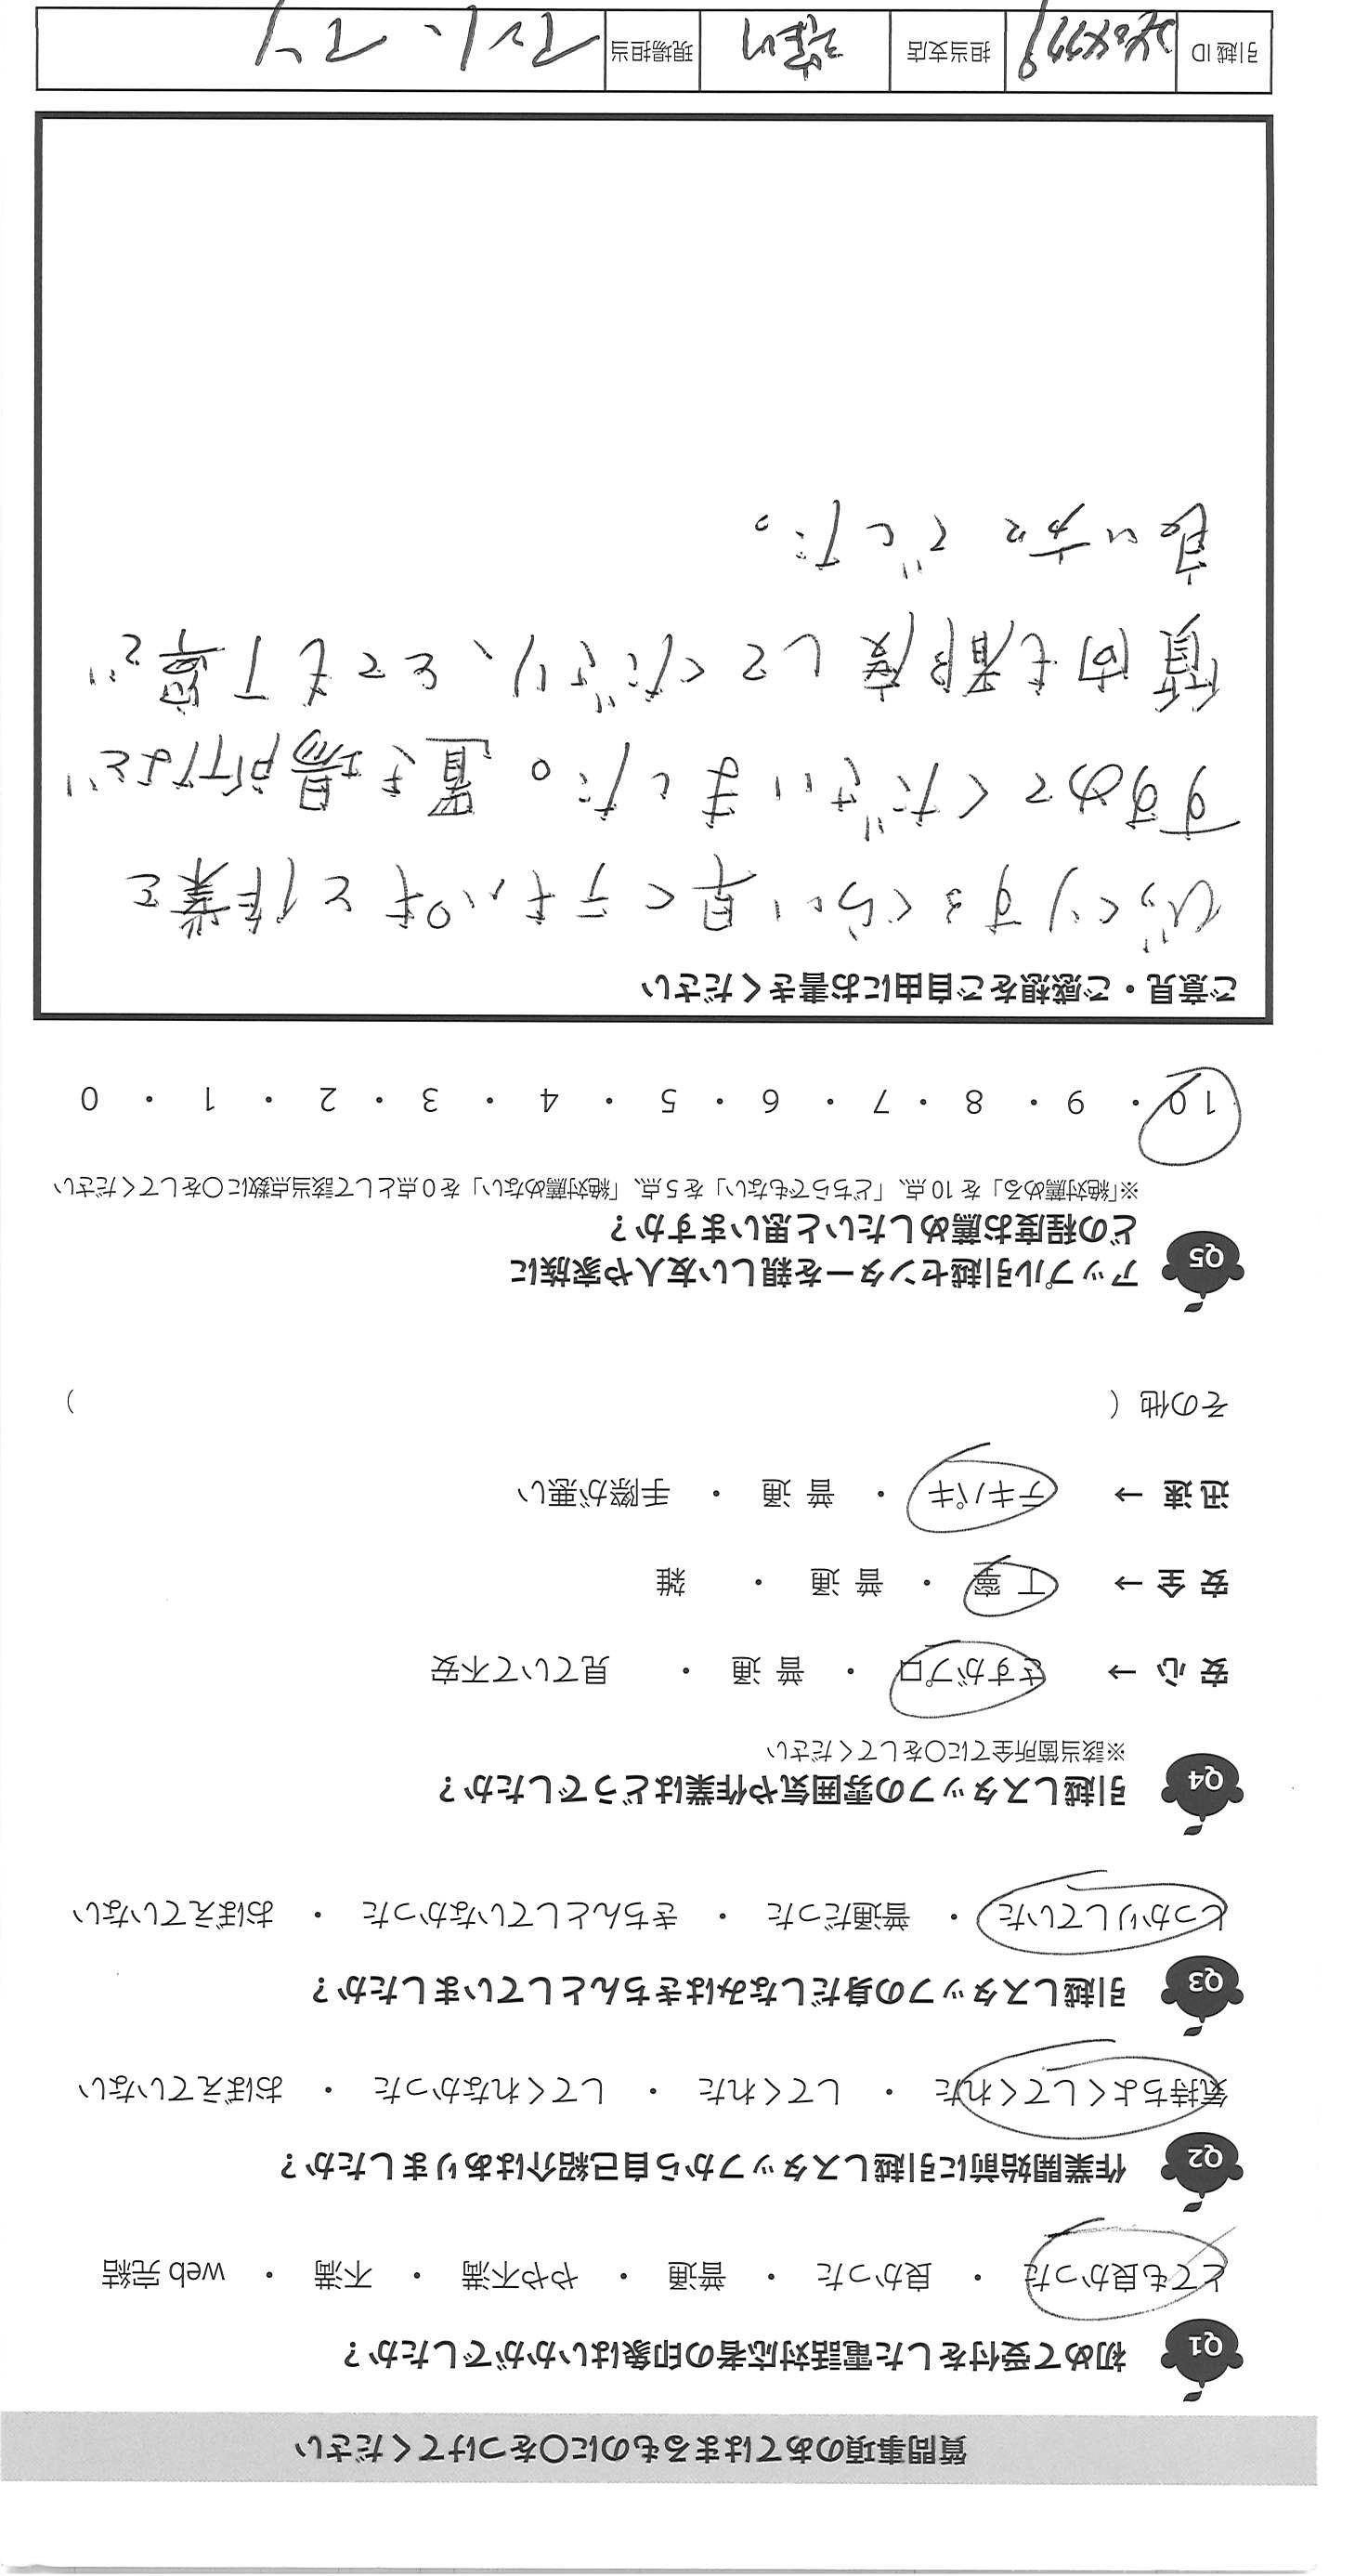 質問事項のあてはまるものに○をつけてください
Q1 初めて受付をした電話対応者の印象はいかがでしたか？
とても良かった ・ 良かった ・ 普通 ・ やや不満 ・ 不満 ・ web 完結
Q2 作業開始前に引越しスタッフから自己紹介はありましたか？
気持ちよくしてくれた ・ してくれた ・ してくれなかった ・ おぼえていない
Q3 引越しスタッフの身だしなみはきちんとしていましたか？
しっかりしていた ・ 普通だった ・ きちんとしていなかった ・ おぼえていない
Q4 引越しスタッフの雰囲気や作業はどうでしたか？
※該当箇所全てに○をしてください
安心 → さすがプロ ・ 普通 ・ 見ていて不安
安全 → 丁寧 ・ 普通 ・ 雑
迅速 → テキパキ ・ 普通 ・ 手際が悪い
その他（ ）
Q5 アップル引越センターを親しい友人や家族に
どの程度お薦めしたいと思いますか？
※「絶対薦める」を 10 点、「どちらでもない」を 5 点、「絶対薦めない」を 0 点として該当点数に○をしてください
10 ・ 9 ・ 8 ・ 7 ・ 6 ・ 5 ・ 4 ・ 3 ・ 2 ・ 1 ・ 0
ご意見・ご感想をご自由にお書きください
びっくりするくらい早くテキパキと作業を
すすめてくださいました。置き場所など
質問も都度してくださり、とても丁寧で
良い方々でした。
引越 ID 担当支店 現場担当